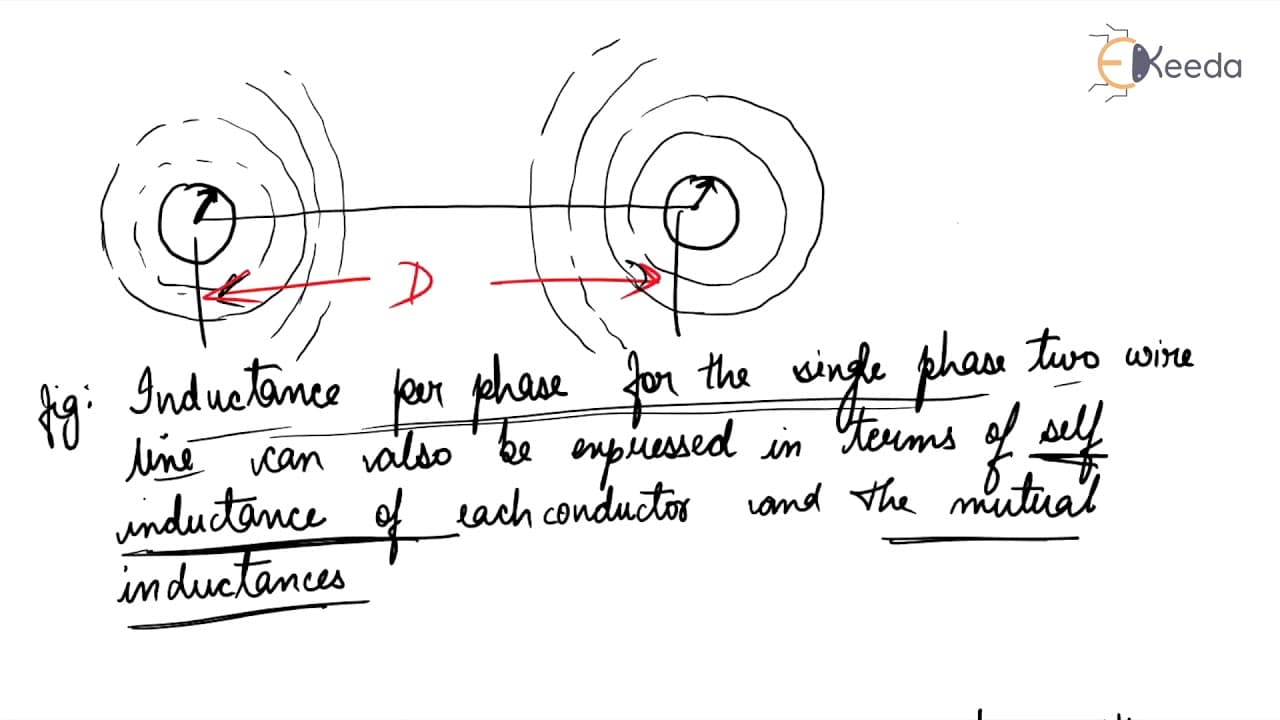 EKeeda
D
fig: Inductance per phase for the single phase two wire
line can also be expressed in terms of self
inductance of each conductor and the mutual
inductances